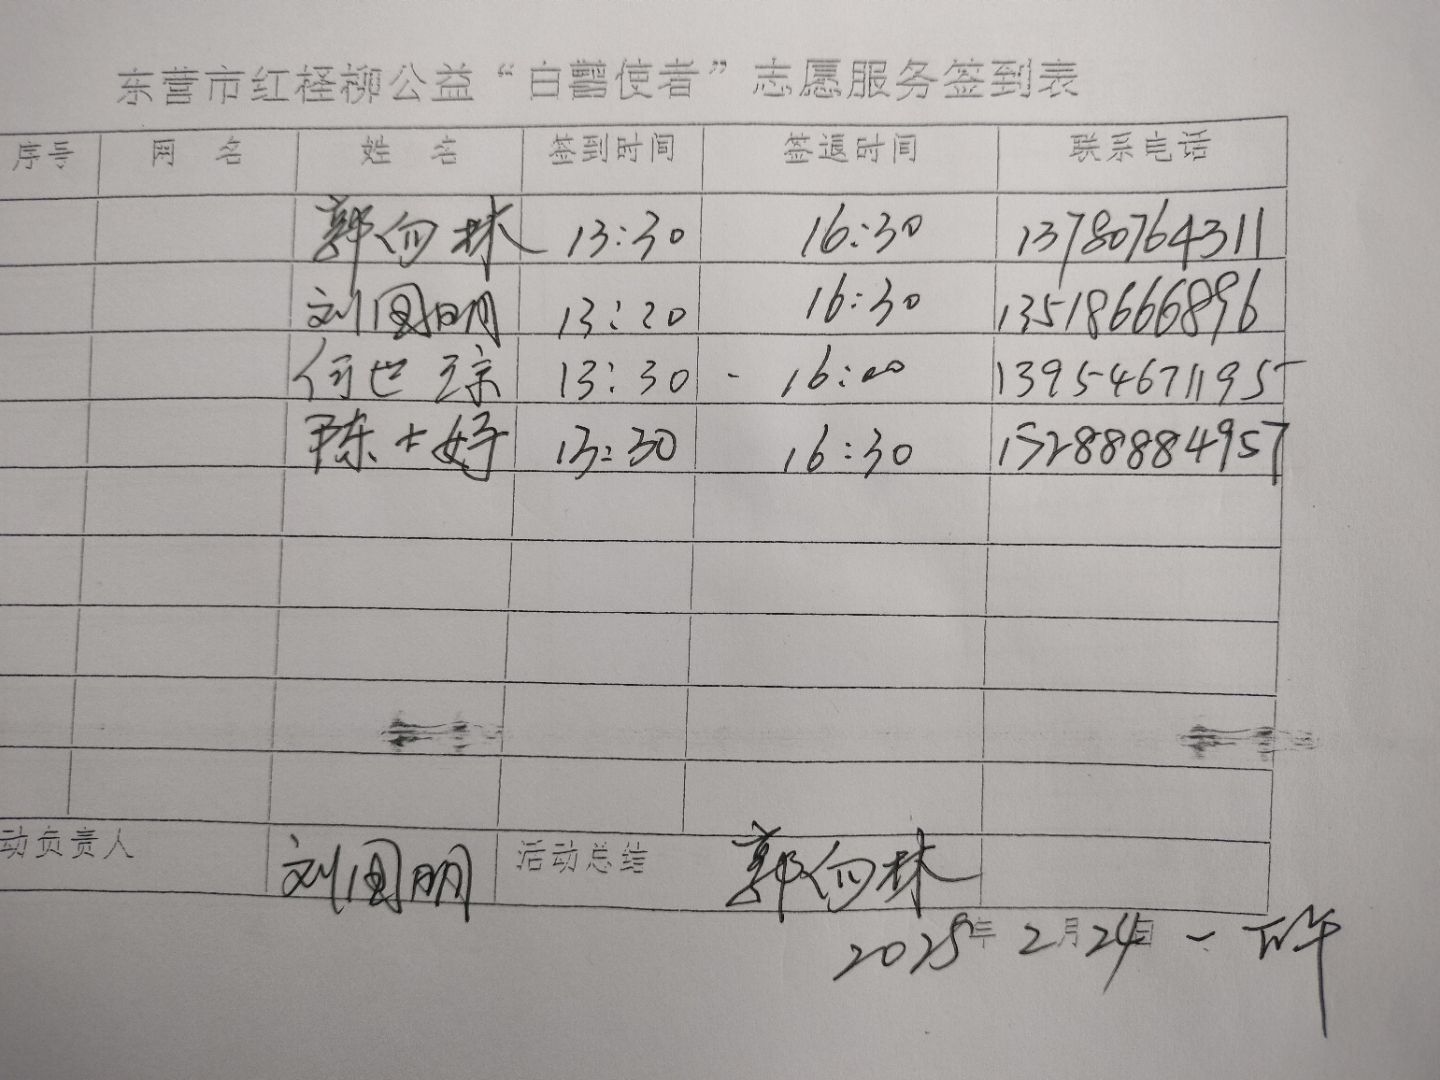 东营市红柽柳公益“白鹭使者”志愿服务签到表
序号 网 名 姓 名 签到时间 签退时间 联系电话
郭向林 13:30 16:30 13780764311
刘国明 13:20 16:30 13518666896
何世琮 13:30 - 16:00 13954671195
陈士好 13:30 16:30 15288884957
动负责人 刘国明 活动总结 郭向林
2025年 2月24日 一 下午